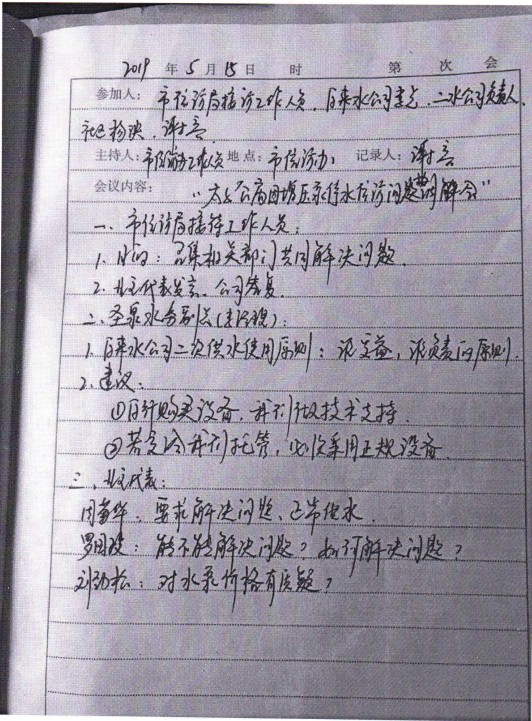 2019 年 5 月 15 日 时 第 次 会
参加人: 市信访局接访工作人员、自来水公司 、二水公司负责人、
社区杨映、谢言
主持人: 市信访 工作人员 地点: 市信访办 记录人: 谢言
会议内容: "太子公寓因增压泵停水信访问题 会"
一、市信访局接待工作人员:
1. 目的: 召集相关部门共同解决问题.
2. 业主代表发言、公司答复.
二、圣泉水务 :
1. 自来水公司二次供水使用原则: 谁受益, 谁负责的原则.
2. 建议:
①自行购买设备, 我们做技术支持.
②若交给我们托管, 必须采用正规设备.
三、业主代表:
周 华: 要求解决问题、正常供水.
罗国 : 能不能解决问题? 如何解决问题?
刘劲松: 对水泵价格有质疑?